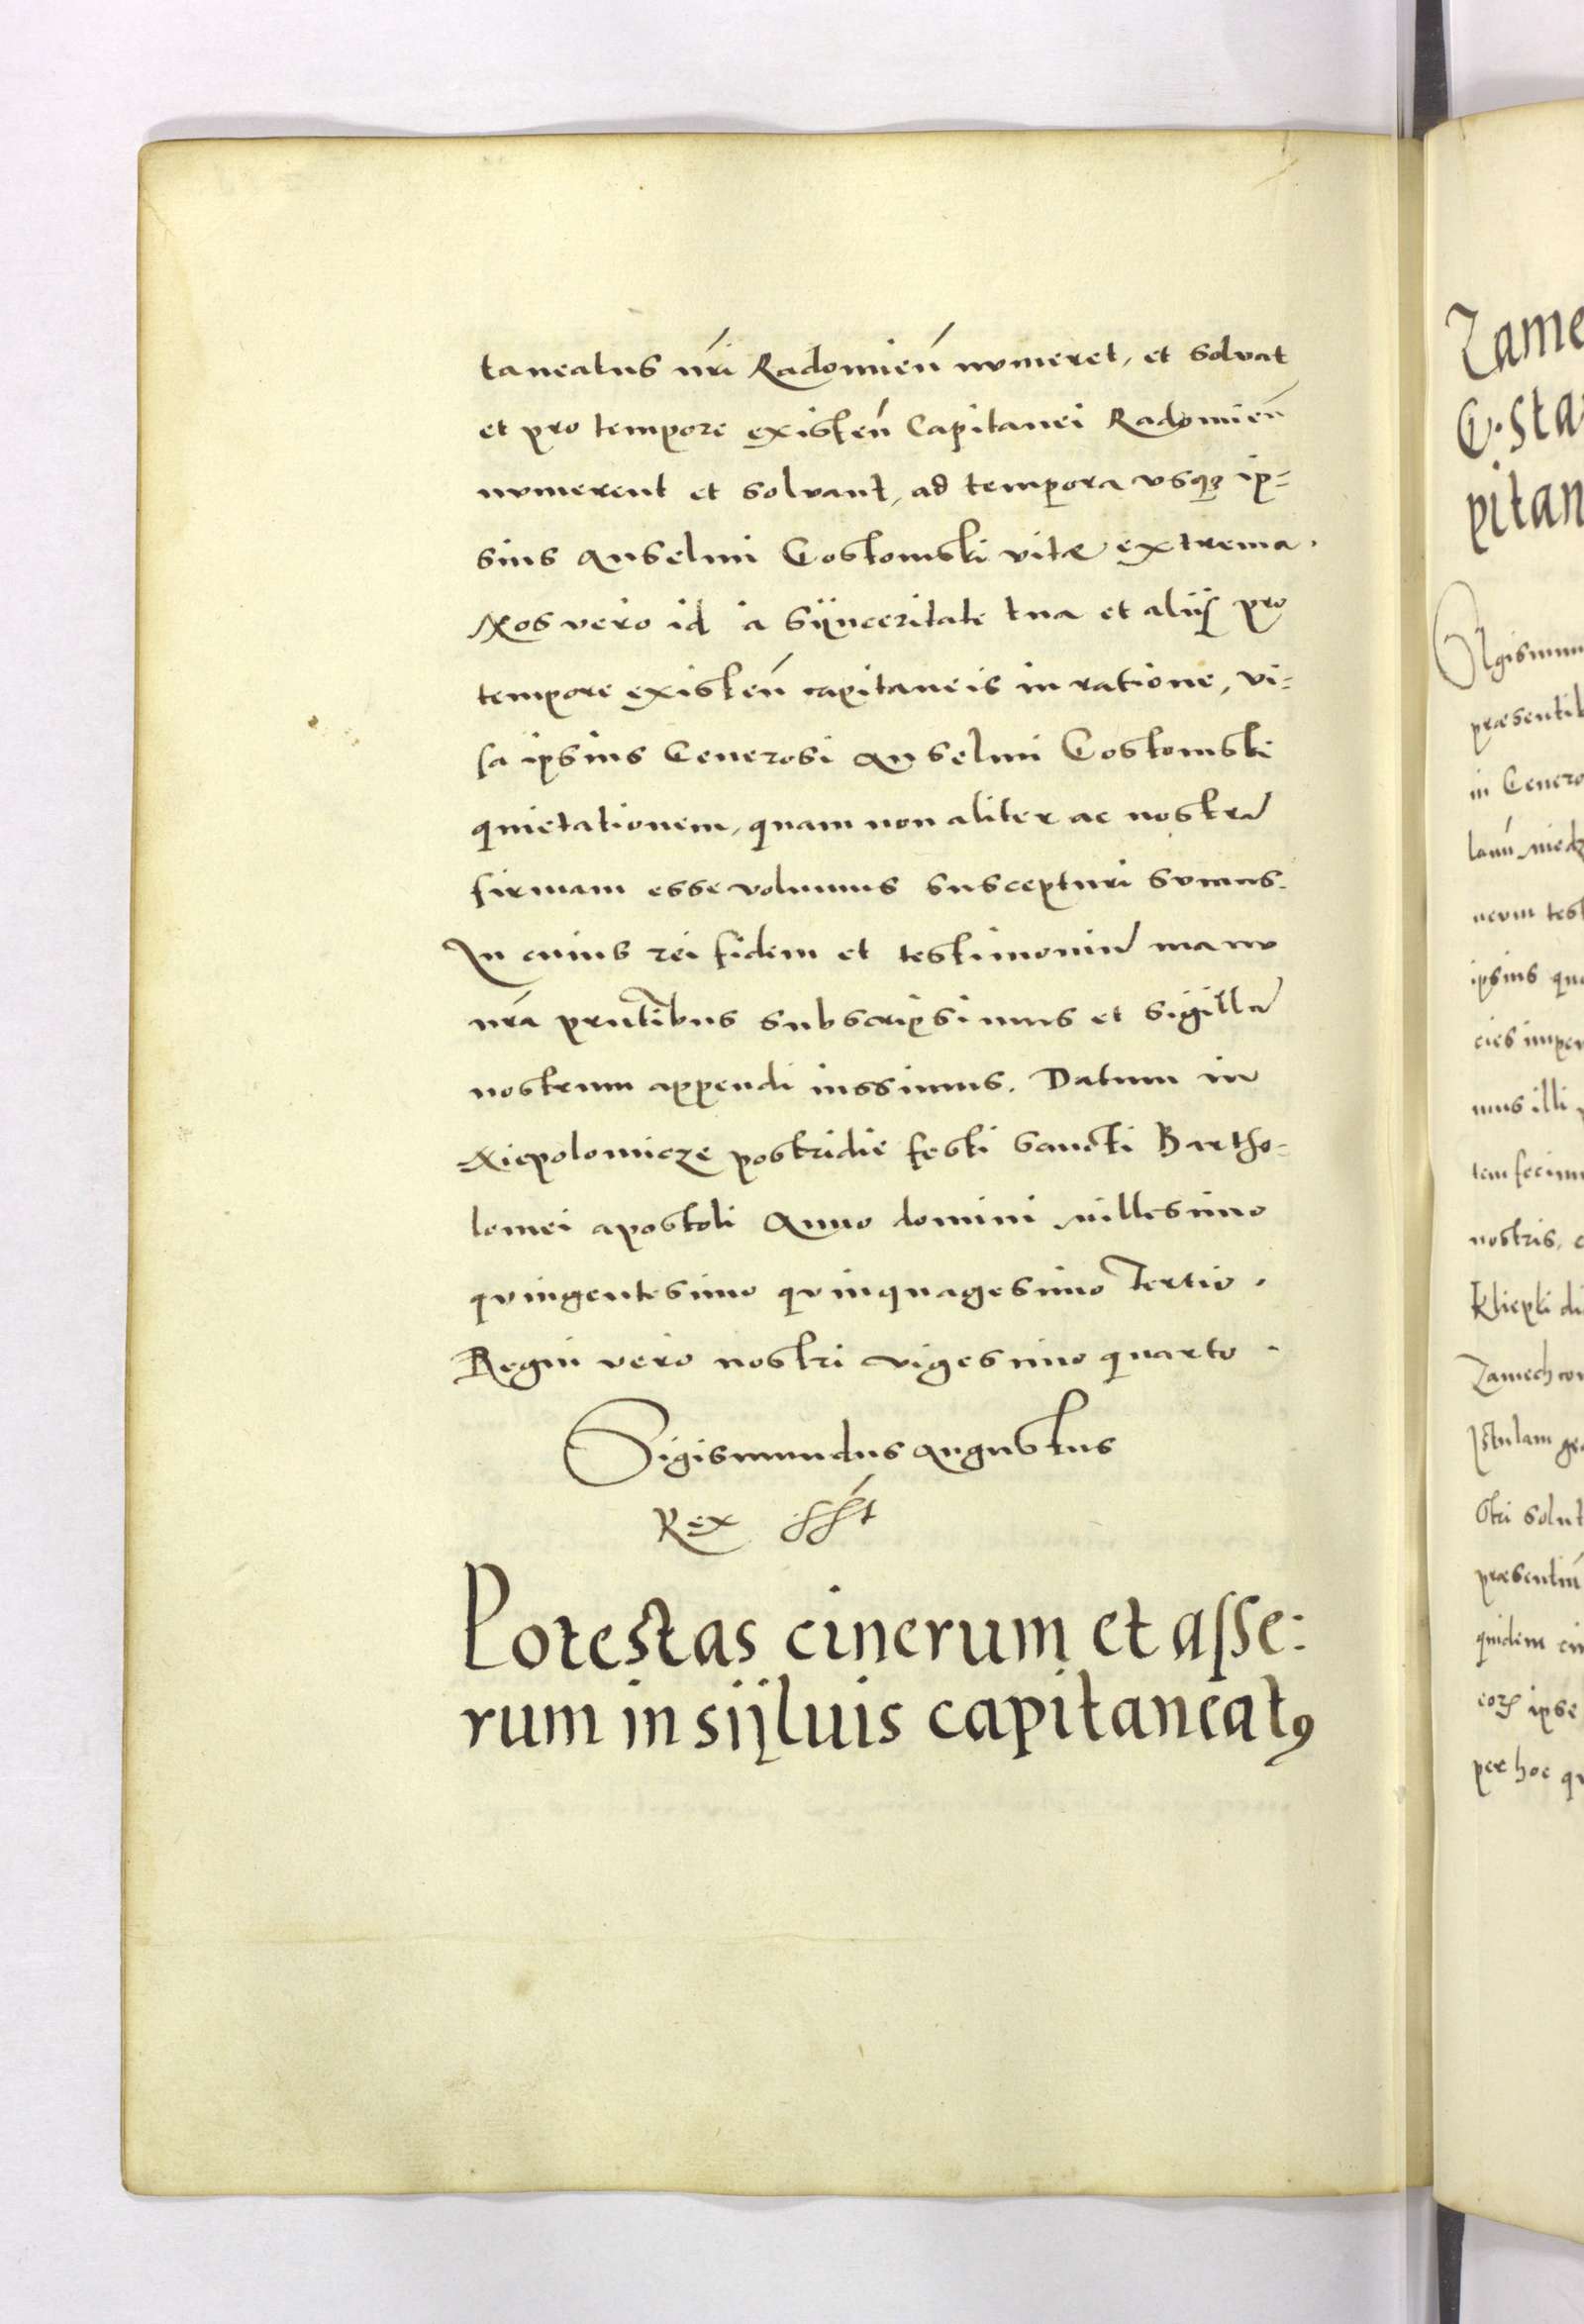 taneatus nr̃i Radomień numeret, et soluat
et pro tempore existeń Capitanei Radomień
numerent et soluant, ad tempora usq₃ ip=
sius Anselmi Gostomski vitæ extrema.
Nos vero id à sÿnceritate tua et alijs pro
tempore existeń capitaneis in ratione, vi=
sa ipsius Generosi Anselmi Gostomski
quietationem, quam non aliter ac nostrā
firmam esse volumus suscepturi sumus.
In cuius rei fidem et testimoniū manu
nr̃a prn̄tibus subscripsimus et sigillū
nostrum appendi iussimus. Datum in
Niepolomicze postridie festi Sancti Bartho=
lomei apostoli Anno domini Millesimo
quingentesimo quinquagesimo Tertio.
Regni vero nostri vigesimo quarto.
Sigismundus Augustus
Rex sst
Potestas cinerum et asse:
rum in sÿluis capitaneatꝰ
Zame
G. Sta
pitan
Sigismun
præsentib
in Genero
lanū Miedz
neum test
ipsius qu
cies impen
mus illi
tem fecim
nostris, c
Kliepki di
Zamech con
Istulam ge
Otri solut
præsentiū
quidem cin
eoꝝ ipse
per hoc qu